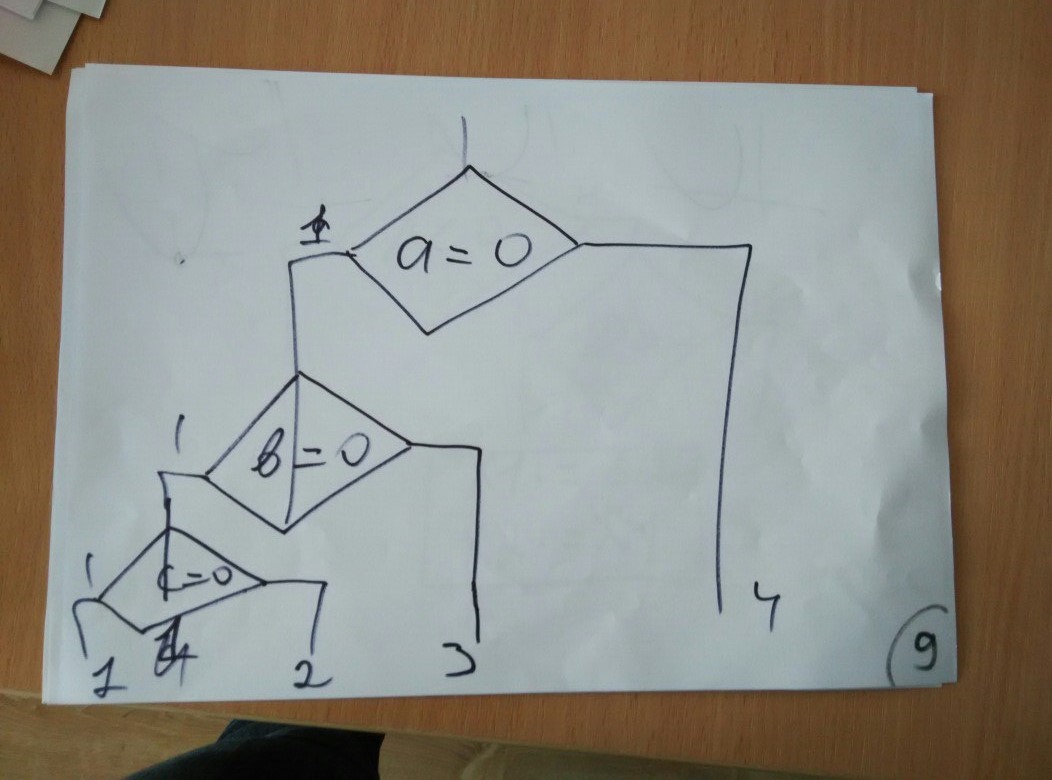 1
a = 0
1
b = 0
1
c = 0
1
2
3
4
9